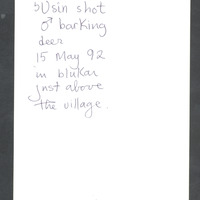 Usin shot
♂ barking
deer
15 May 92
in blukar
just above
the village.